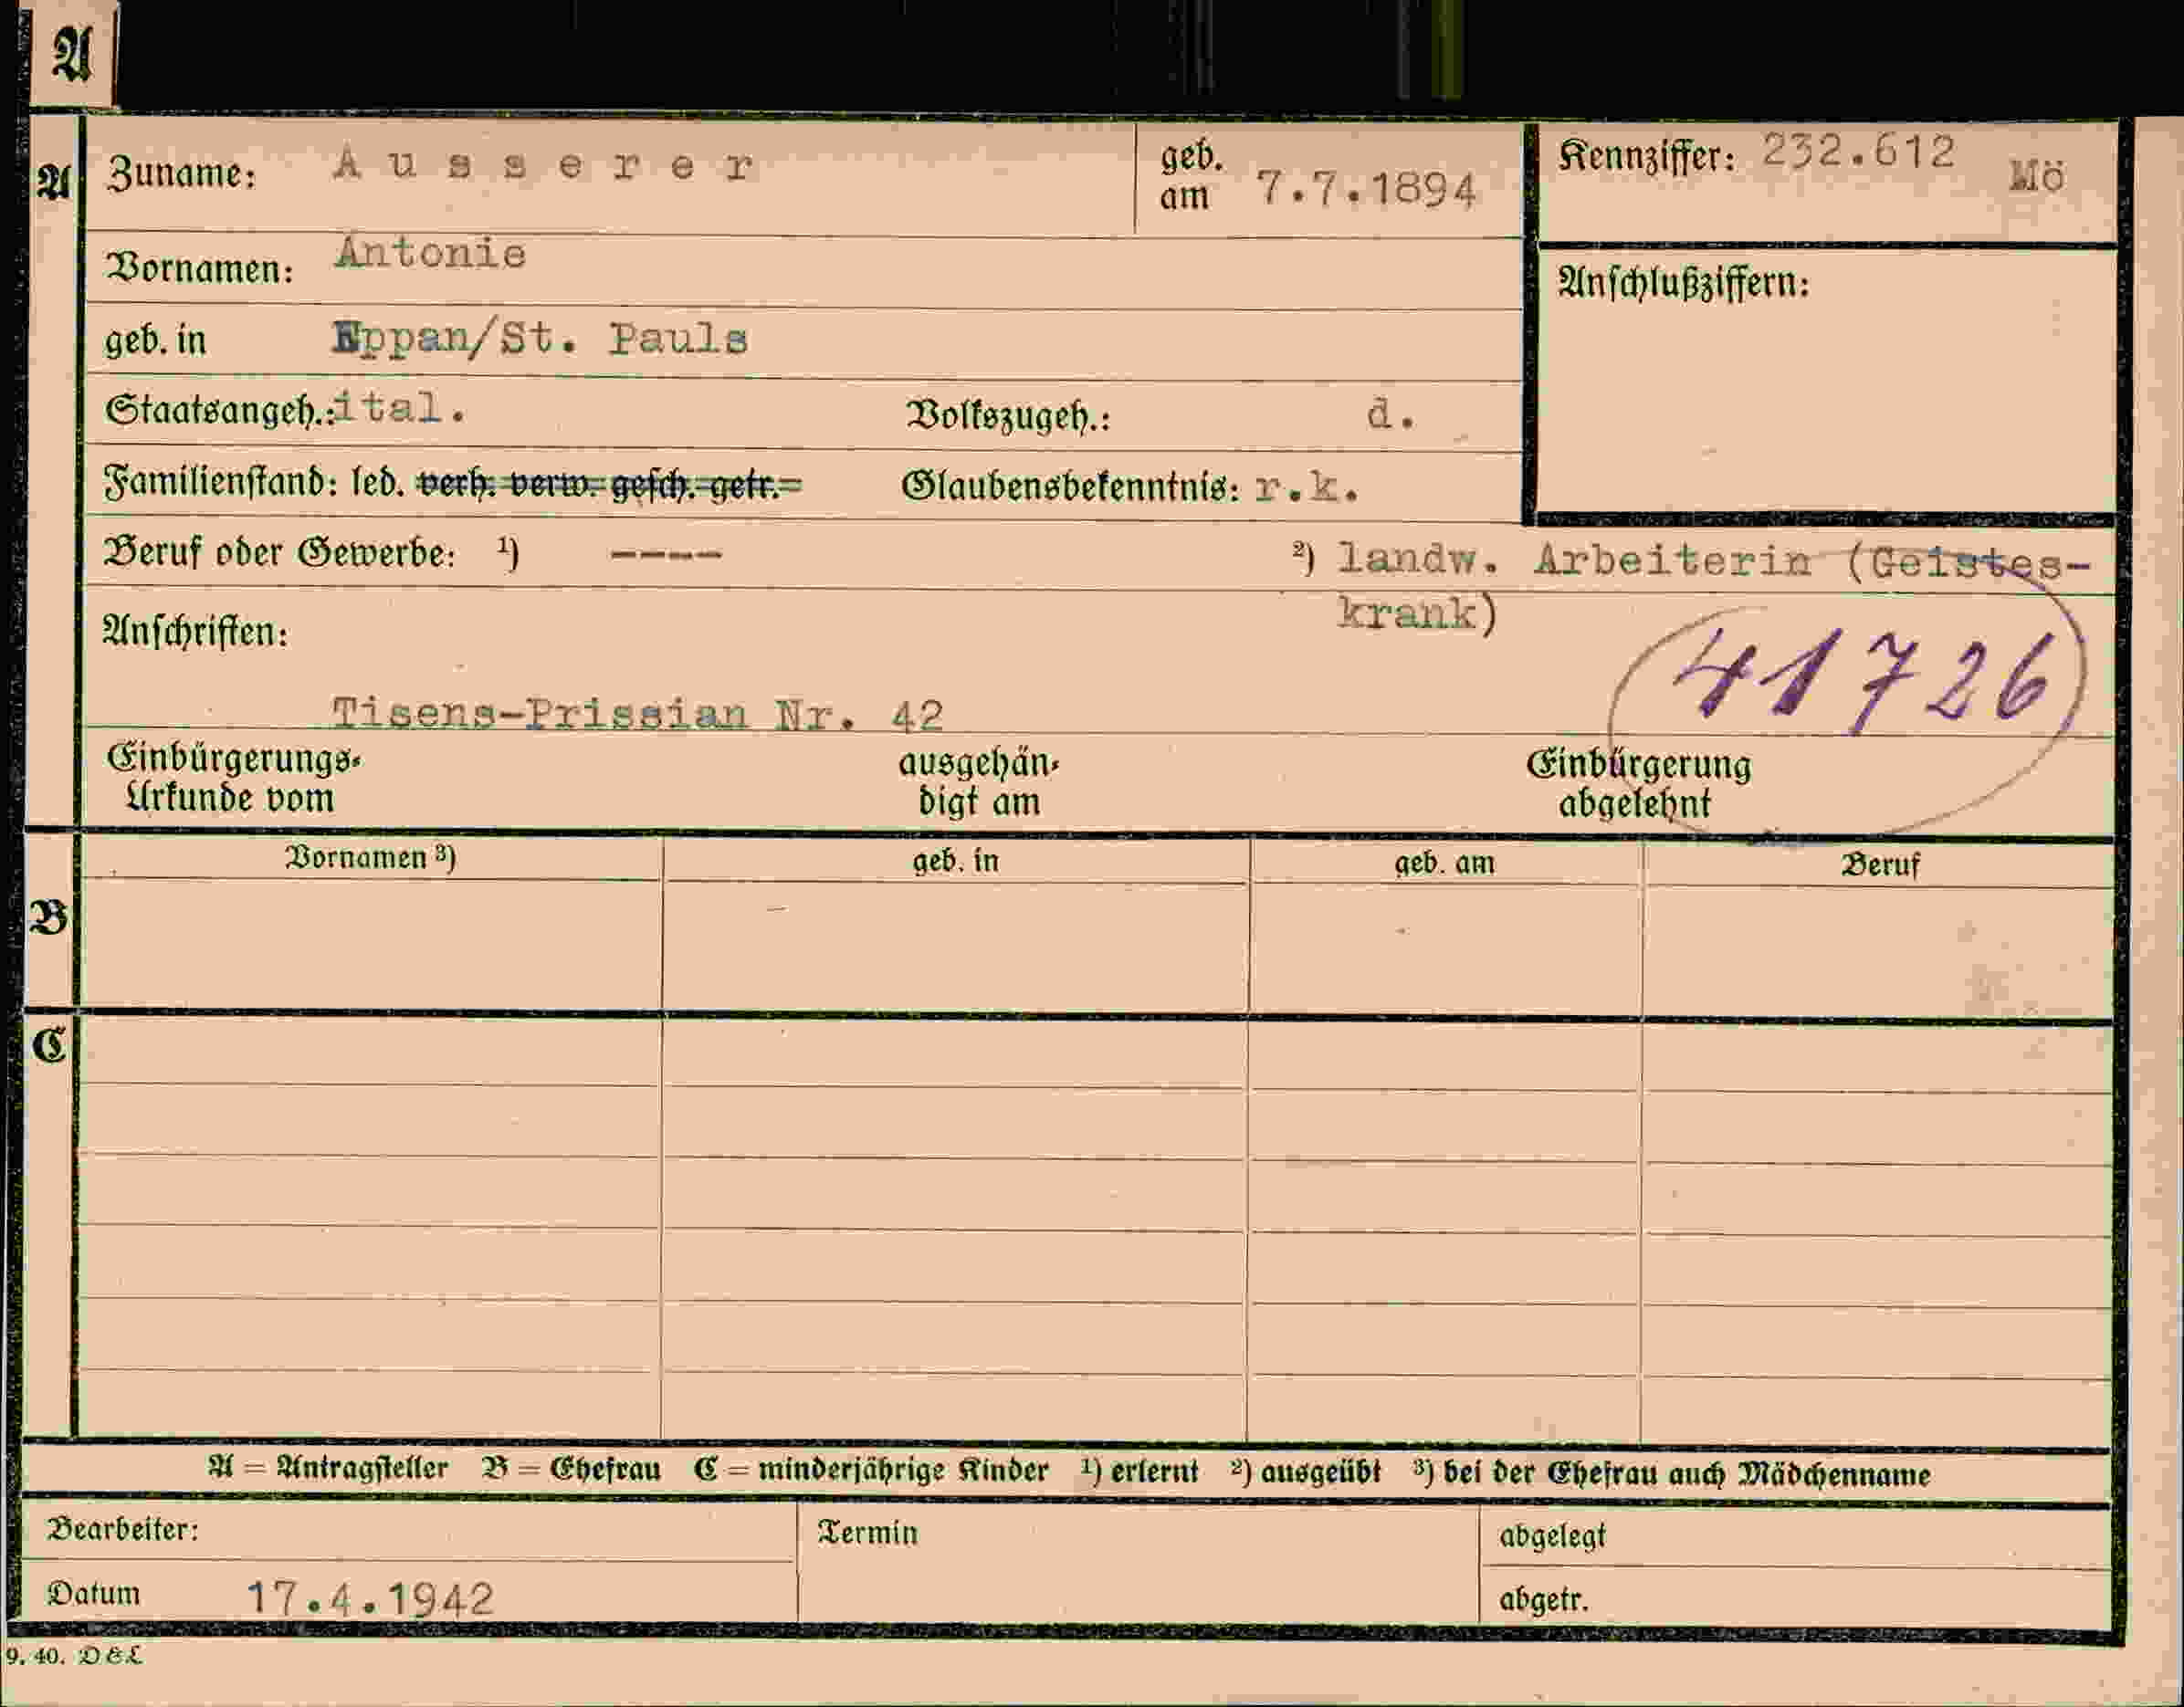 A
A
Zuname: Ausserer geb. am 7.7.1894 Kennziffer: 232.612 Mö
Vornamen: Antonie
Anschlußziffern:
geb. in Eppan/St. Pauls
Staatsangeh.: ital. Volkszugeh.: d.
Familienstand: led. verh. verw. gesch. getr. Glaubensbekenntnis: r.k.
Beruf oder Gewerbe: ¹) ---- ²) landw. Arbeiterin (Geistes-
krank)
Anschriften:
41726
Tisens-Prissian Nr. 42
Einbürgerungs- ausgehän- Einbürgerung
Urkunde vom digt am abgelehnt
Vornamen ³) geb. in geb. am Beruf
B
C
A = Antragsteller B = Ehefrau C = minderjährige Kinder ¹) erlernt ²) ausgeübt ³) bei der Ehefrau auch Mädchenname
Bearbeiter: Termin abgelegt
Datum 17.4.1942 abgetr.
9. 40. D&L